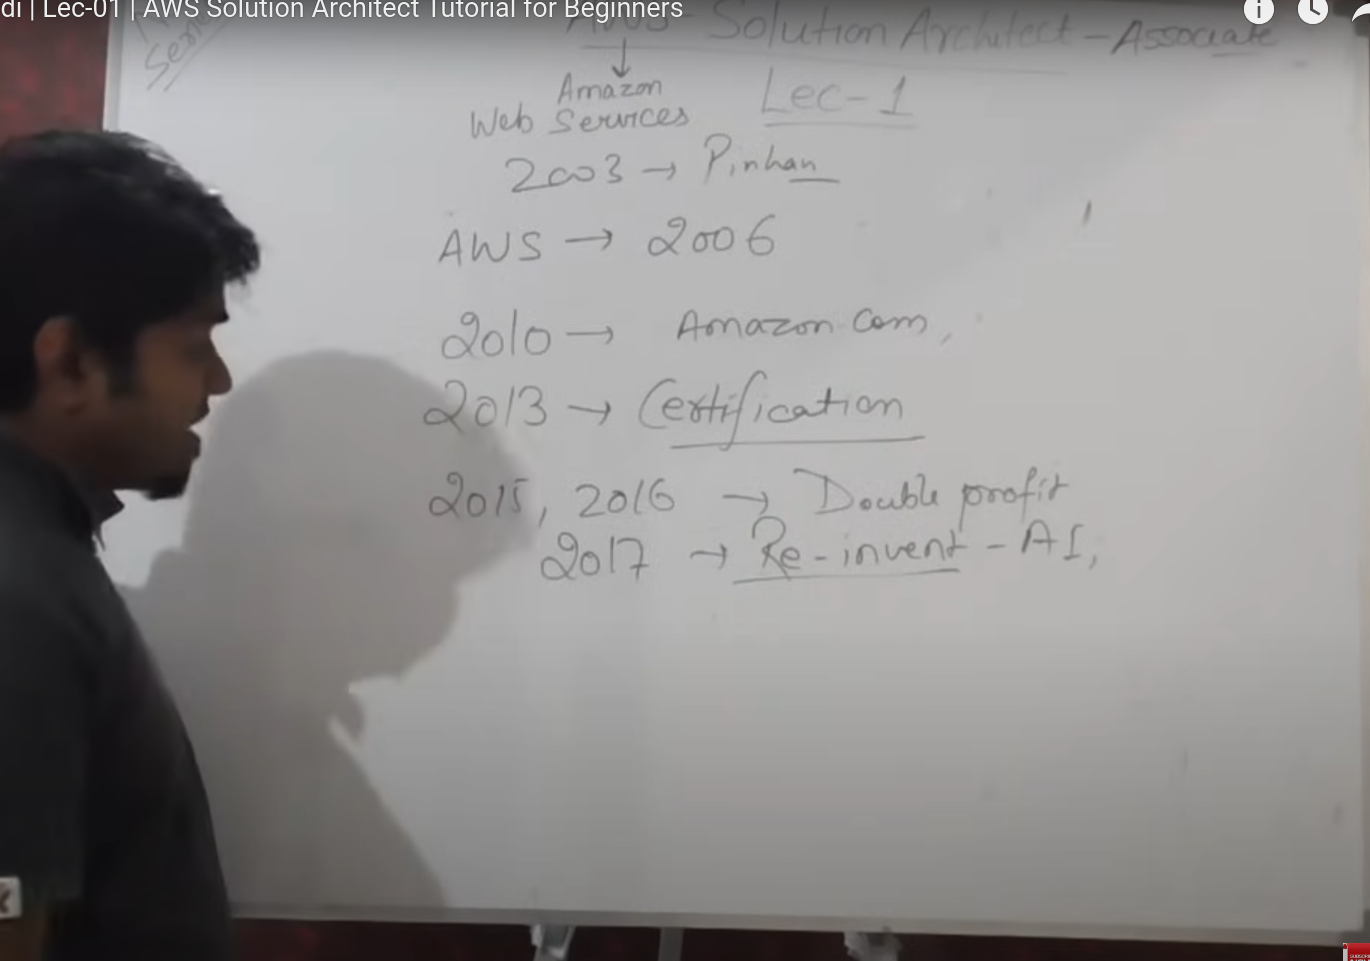 di | Lec-01 | AWS Solution Architect Tutorial for Beginners
Series
AWS - Solution Architect - Associate
Amazon
Web Services
Lec-1
2003 → Pinhan
AWS → 2006
2010 → Amazon.Com,
2013 → Certification
2015, 2016 → Double profit
2017 → Re-invent - AI,